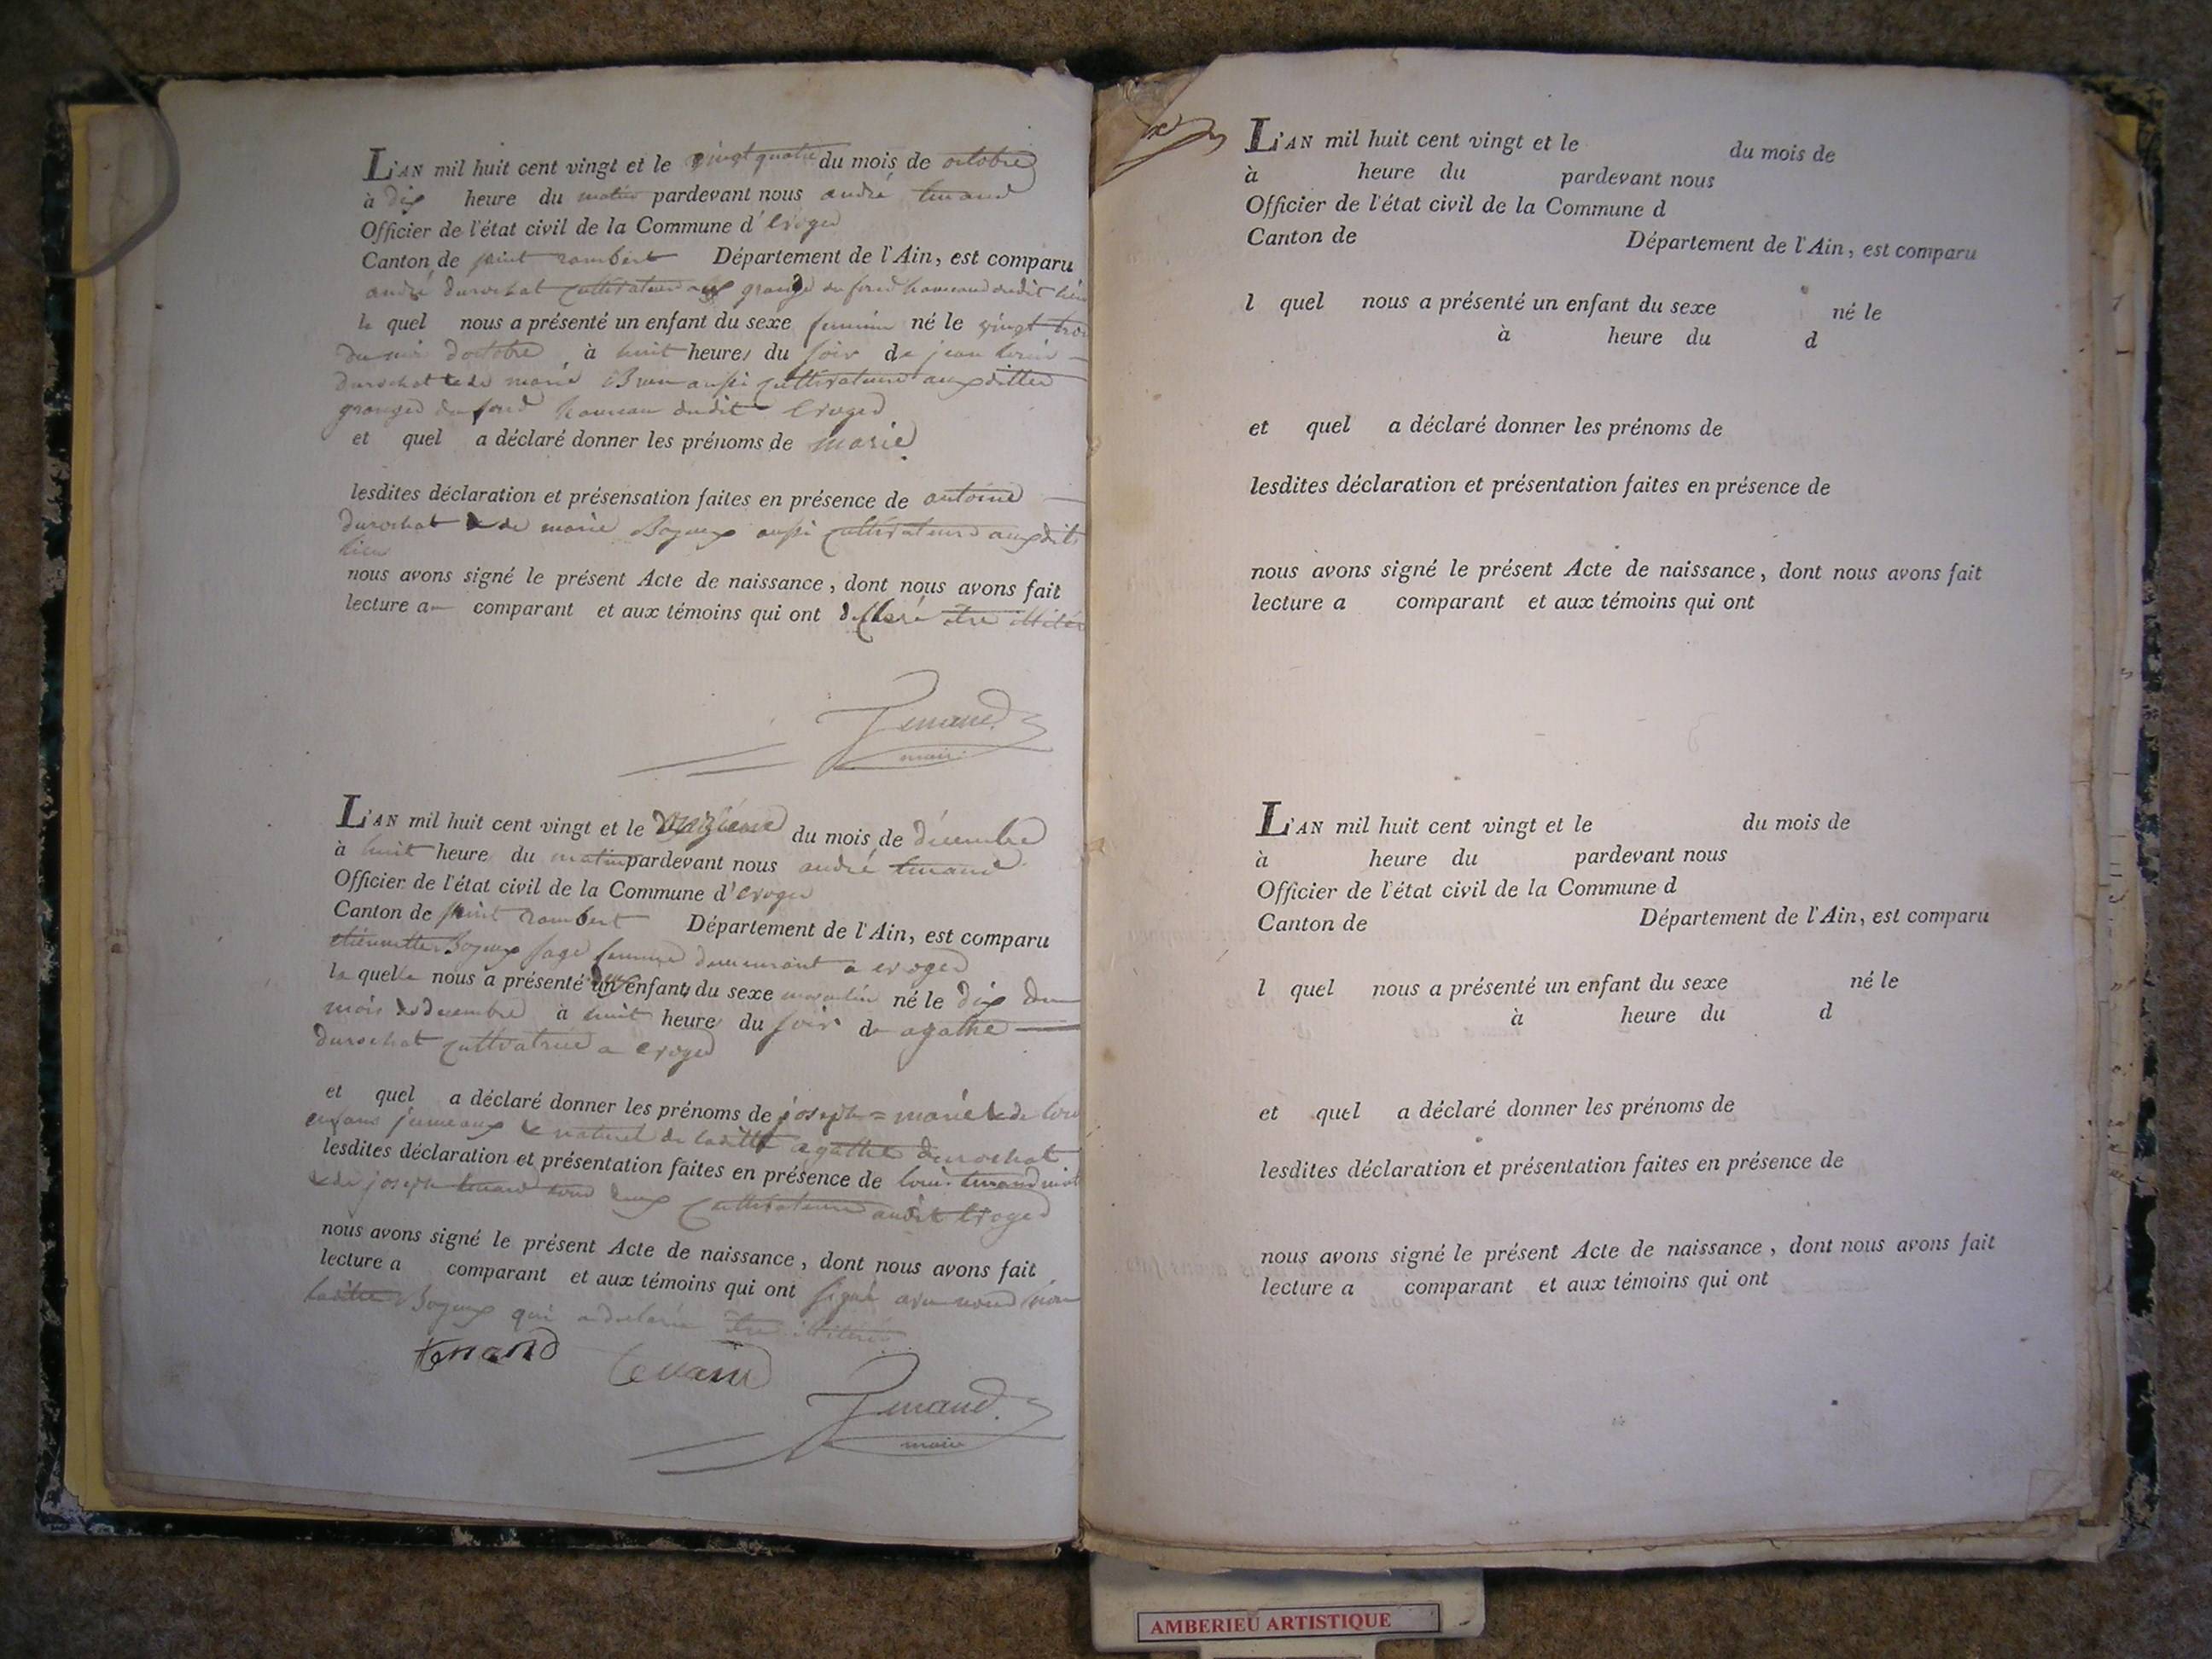 L'AN mil huit cent vingt et le vingt quatre du mois de octobre
à dix heure du matin pardevant nous andré tenand
Officier de l'état civil de la Commune d'
Canton de saint rambert Département de l'Ain, est comparu
andré durochat cultivateur aux granges du fond hameau dudit lieu
le quel nous a présenté un enfant du sexe feminin né le vingt trois
du mois d'octobre à huit heures du soir de jean louis
durochat & de marie aussi cultivateurs aux dittes
granges du fond hameau dudit
et quel a déclaré donner les prénoms de marie
lesdites déclaration et présensation faites en présence de antoine
durochat & de marie Bozeux aussi cultivateurs auxdits
lieu
nous avons signé le présent Acte de naissance, dont nous avons fait
lecture au comparant et aux témoins qui ont déclaré être
Tenand
maire
L'AN mil huit cent vingt et le onzième du mois de décembre
à huit heure du matin pardevant nous andré tenand
Officier de l'état civil de la Commune d'
Canton de saint rambert Département de l'Ain, est comparu
etiennette Bozeux sage femme demeurant a
la quelle nous a présenté deux enfants du sexe masculin né le dix du
mois de decembre à huit heure du soir de agathe
durochat cultivatrice a
et quel a déclaré donner les prénoms de joseph=marie & de
enfans jumeaux & naturel de laditte agathe durochat
lesdites déclaration et présentation faites en présence de louis tenand
& de joseph tenand tous deux cultivateurs audit
nous avons signé le présent Acte de naissance, dont nous avons fait
lecture a comparant et aux témoins qui ont signé avec nous non
laditte Bozeux qui a declarée être
tenand tenand
Tenand
maire
L'AN mil huit cent vingt et le du mois de
à heure du pardevant nous
Officier de l'état civil de la Commune d
Canton de Département de l'Ain, est comparu
l quel nous a présenté un enfant du sexe né le
à heure du d
et quel a déclaré donner les prénoms de
lesdites déclaration et présentation faites en présence de
nous avons signé le présent Acte de naissance, dont nous avons fait
lecture a comparant et aux témoins qui ont
L'AN mil huit cent vingt et le du mois de
à heure du pardevant nous
Officier de l'état civil de la Commune d
Canton de Département de l'Ain, est comparu
l quel nous a présenté un enfant du sexe né le
à heure du d
et quel a déclaré donner les prénoms de
lesdites déclaration et présentation faites en présence de
nous avons signé le présent Acte de naissance, dont nous avons fait
lecture a comparant et aux témoins qui ont
AMBERIEU ARTISTIQUE